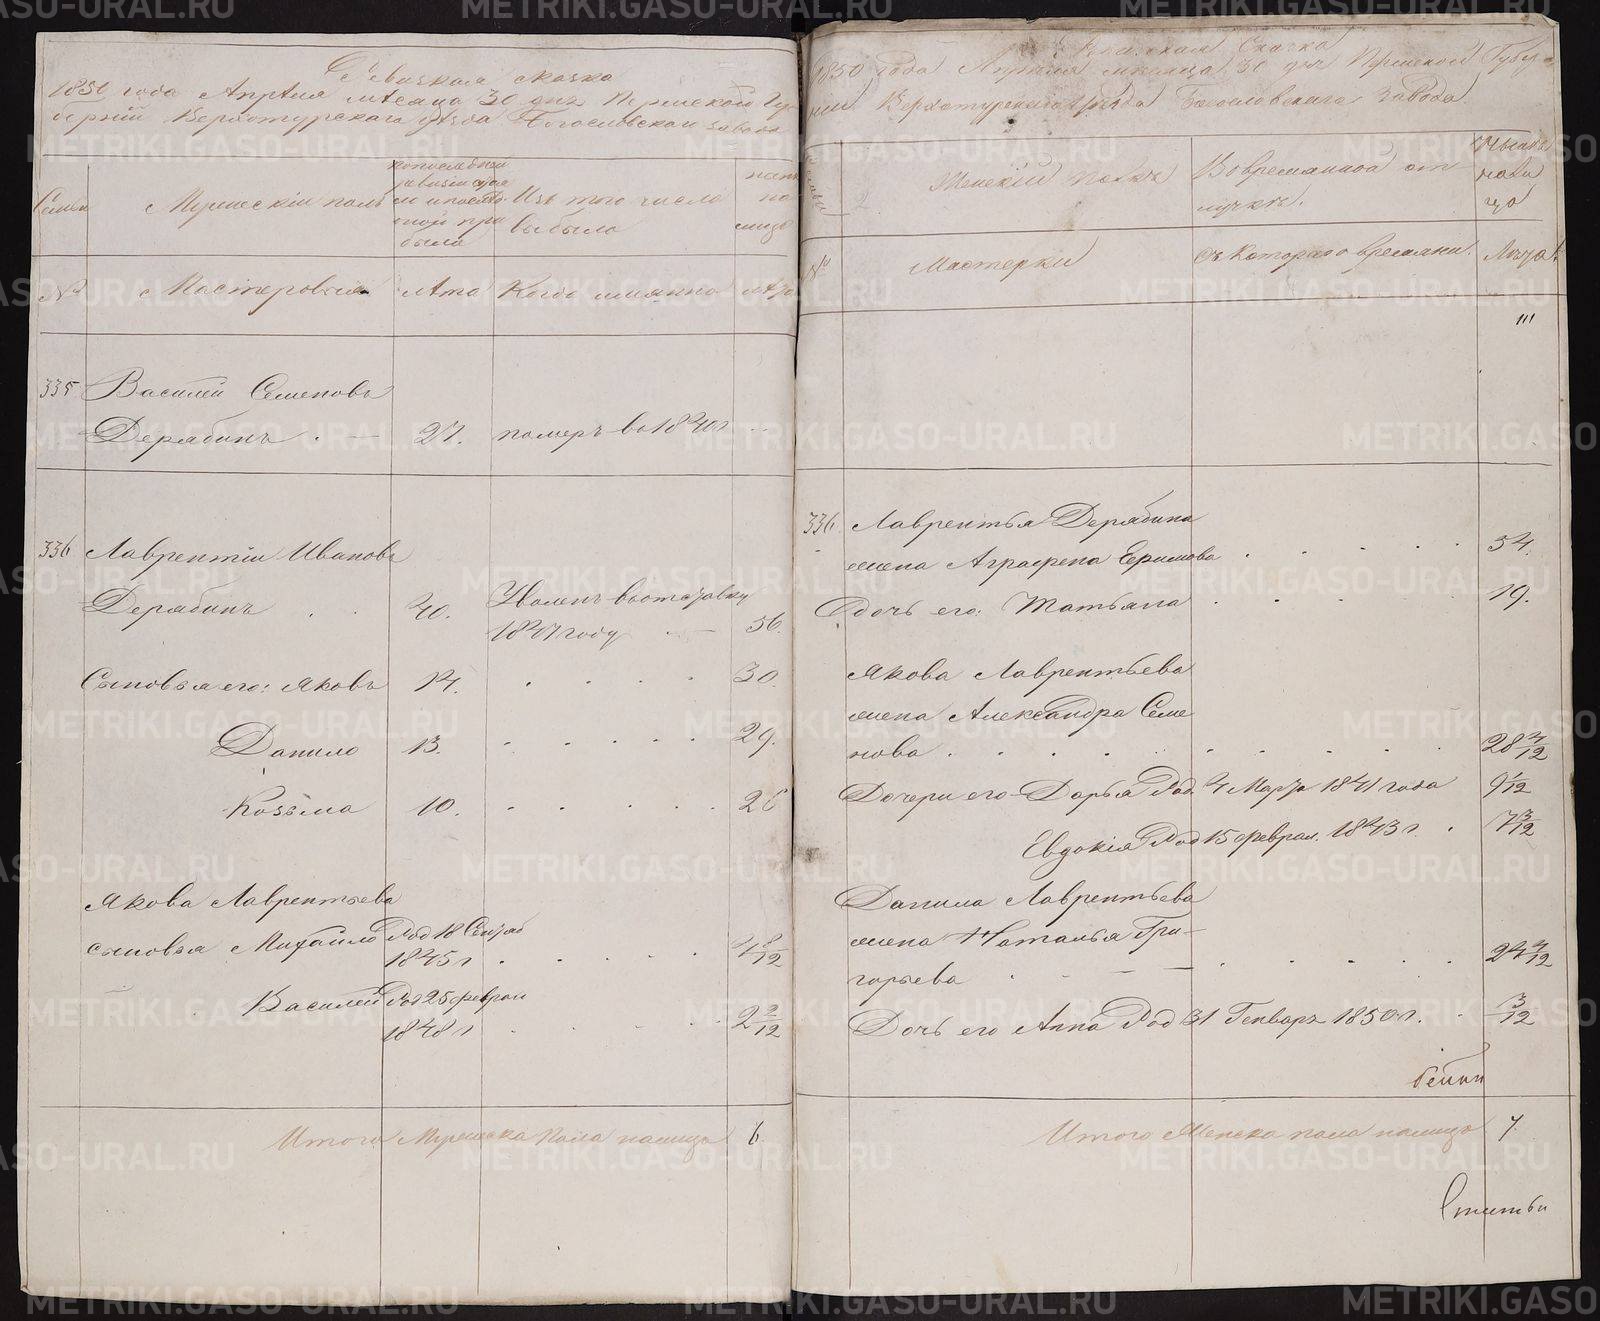 Ревизская сказка
1850 года Апреля месяца 30 дня Пермской Гу
берний Верхотурскаго уезда Богословскаго завода
Семьи
Мужескій полъ
Изъ того числа
выбыло
на
лицо
№
Мастеровыя
Лета
Когда имянно
Лета
335 Василей Семеновъ
Дерябинъ . — 27. померъ во 1840 г
336 Лаврентіи Ивановъ
Дерябинъ . . 40. Уволенъ вотставку
1847 году — 56.
Сыновья его: Яковъ 14. . . . . 30.
Данило 13. . . . . . 29.
Козьма 10. . . . . . 26
Якова Лаврентьева
сыновья Михайло Род 18 Сентяб
1845 г . . . . . 4 8/12
Василей Род 25 феврал
1848 г . . . . 2 2/12
Итого Мужеска пола налицо 6
Ревизская Сказка
1850 года Апреля месяца 30 дня Пермской Губер
нии Верхотурскаго Уезда Богословскаго Завода
Женскій полъ
Вовременной от
лучкъ.
Ныне
нали
цо
№
Мастерки
Съ Котораго времяни.
Лета
111
336 Лаврентья Дерябина
жена Аграфена Ефимова . . . . 54.
Дочь его: Татьяна . . . . . 19.
Якова Лаврентьева
жена Александра Семе
нова . . . . . . . . 28 4/12
Дочери его Дарья Род. 4 Марта 1841 года 9 1/12
Евдокія Род 15 феврал. 1843 г. . 7 3/12
Данила Лаврентьева
жена Наталья Гри-
горьева . — — — . . . . . 24 4/12
Дочь его Анна Род 31 Генваря 1850 г. . 3/12
Итого Женска пола налицо 7
METRIKI.GASO-URAL.RU